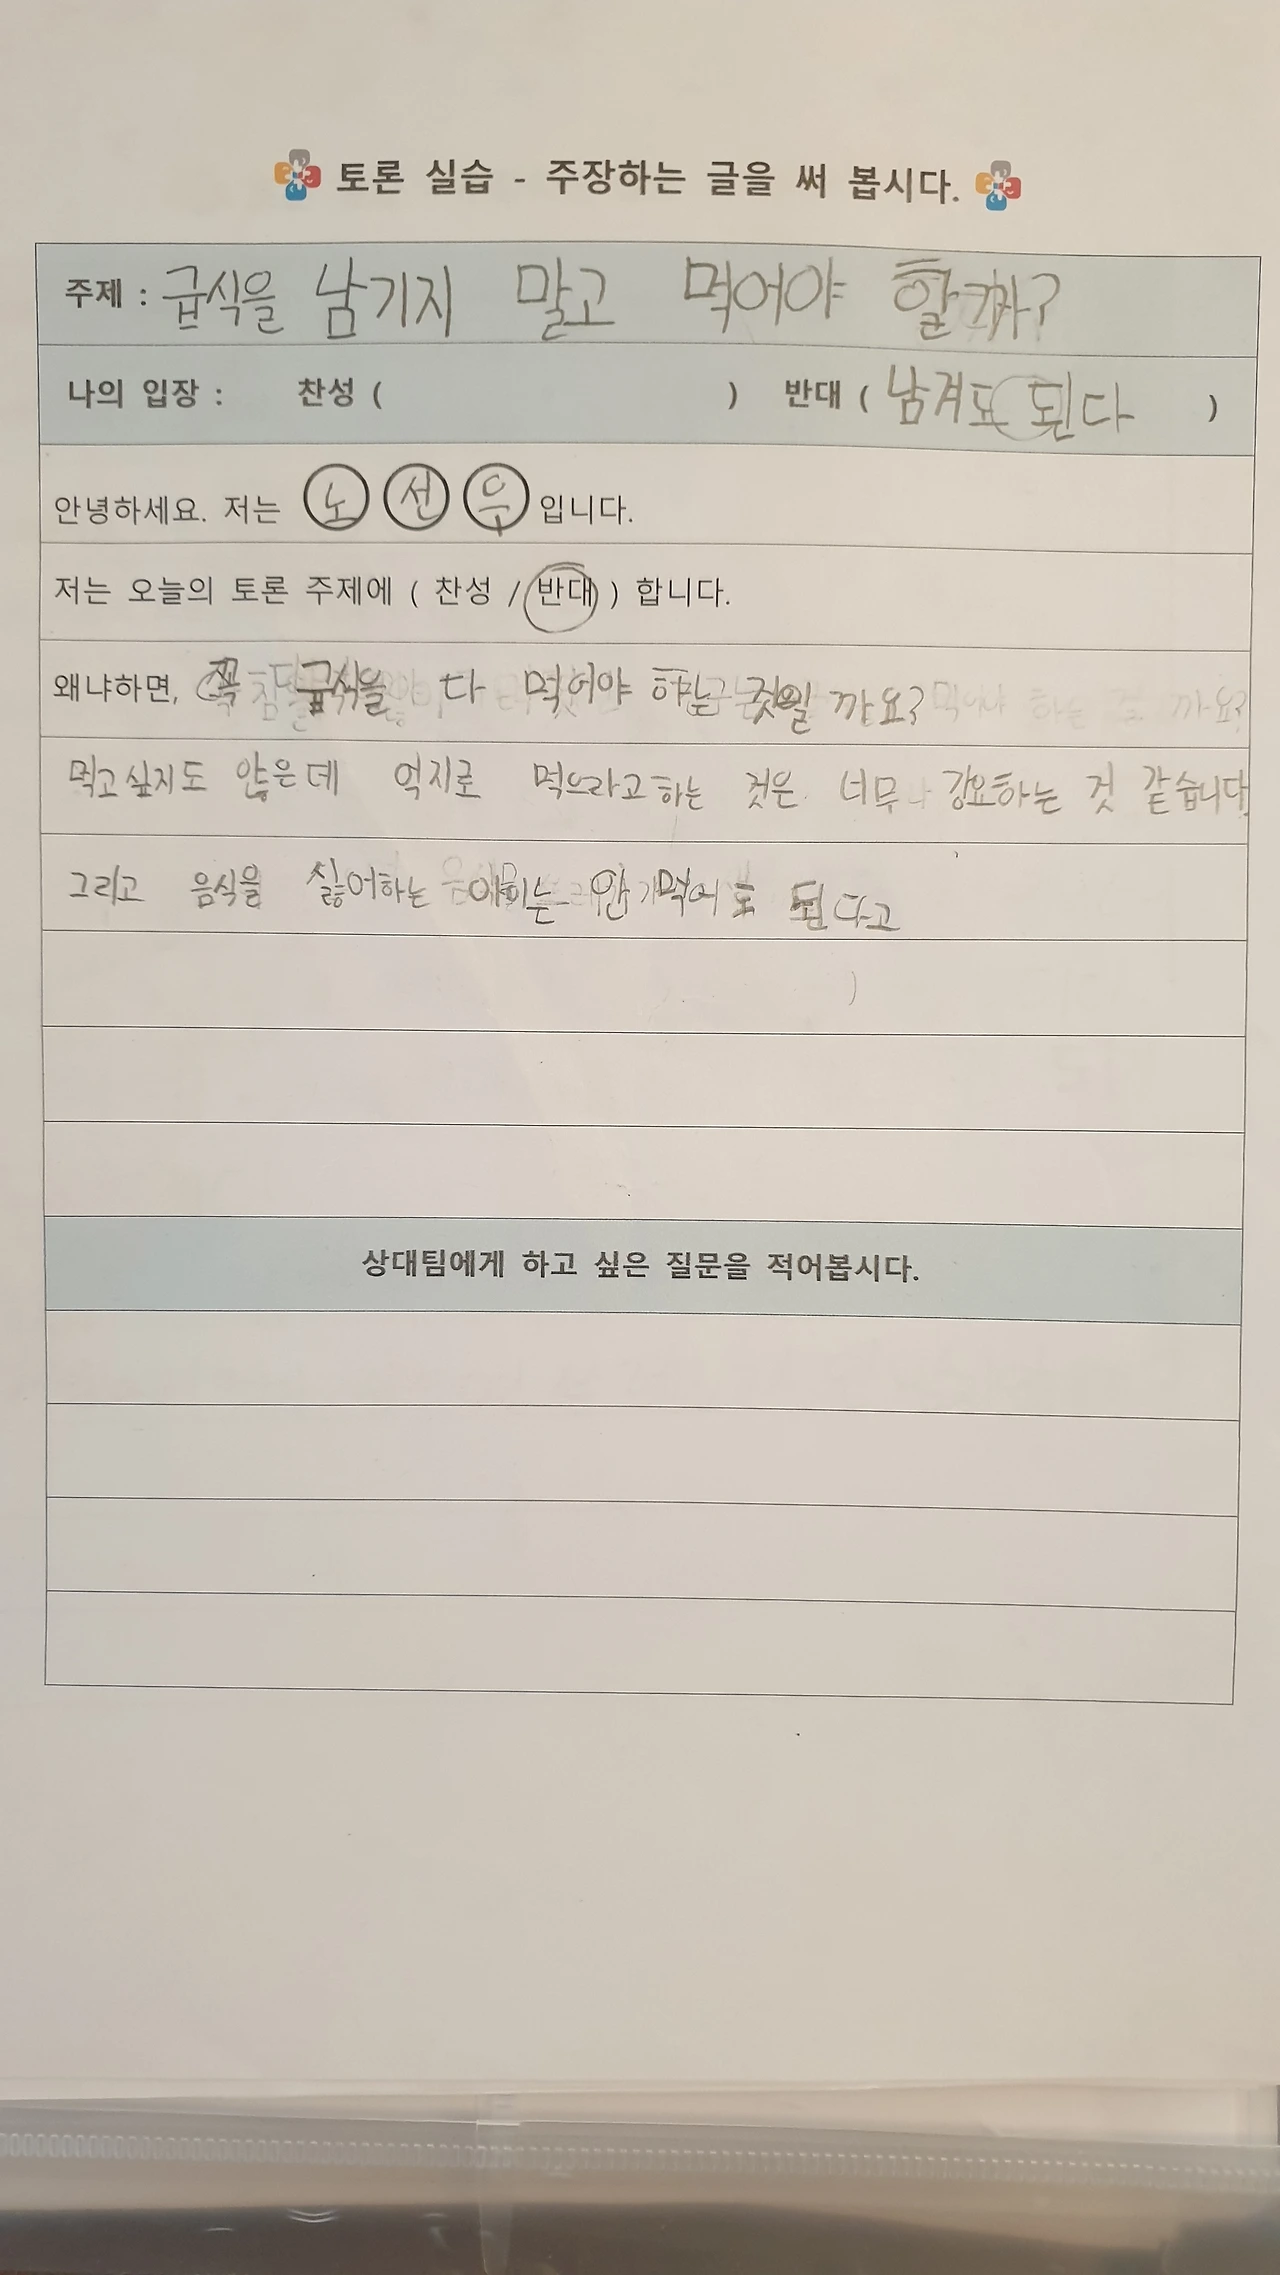 토론 실습 - 주장하는 글을 써 봅시다.
주제 : 급식을 남기지 말고 먹어야 할까?
나의 입장 : 찬성 ( ) 반대 ( 남겨도 된다 )
안녕하세요. 저는 노 선 우 입니다.
저는 오늘의 토론 주제에 ( 찬성 / 반대 ) 합니다.
왜냐하면, 꼭 급식을 다 먹어야 하는 것일 까요?
먹고싶지도 않은데 억지로 먹으라고 하는 것은 너무 강요하는 것 같습니다.
그리고 음식을 싫어하는 아이는 안 먹어도 된다고
상대팀에게 하고 싶은 질문을 적어봅시다.